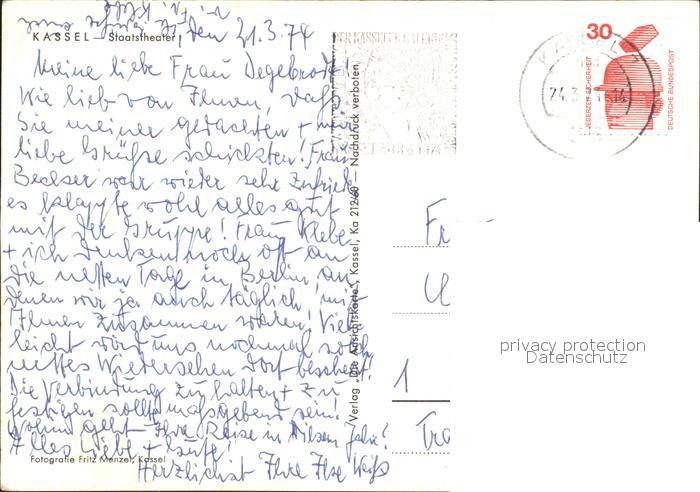 KASSEL — Staatstheater
den 21.3.74
Meine liebe Frau Degebrodt!
Wie lieb von Ihnen, daß
Sie meiner gedachten + mir
liebe Grüße schickten! Frau
Becker war wieder sehr zufrieden
es klappte wohl alles gut
mit der Gruppe! Frau Klebe
+ ich denken noch oft an
die netten Tage in Berlin, an
denen wir ja auch täglich mit
Ihnen zusammen waren! Viel-
leicht wird uns nochmal solch
nettes Wiedersehen dort beschert!
Die Verbindung zu halten + zu
festigen sollte maßgebend sein.
Wohin geht Ihre Reise in diesem Jahr?
Alles Liebe + Gute!
Herzlichst Ihre Ilse Weiß
Fotografie Fritz Menzel, Kassel
Verlag „Die Ansichtskarte“, Kassel, Ka 212/60 — Nachdruck verboten
30
JEDERZEIT SICHERHEIT
DEUTSCHE BUNDESPOST
KASSEL
Fr
U
1
Tro
privacy protection
Datenschutz